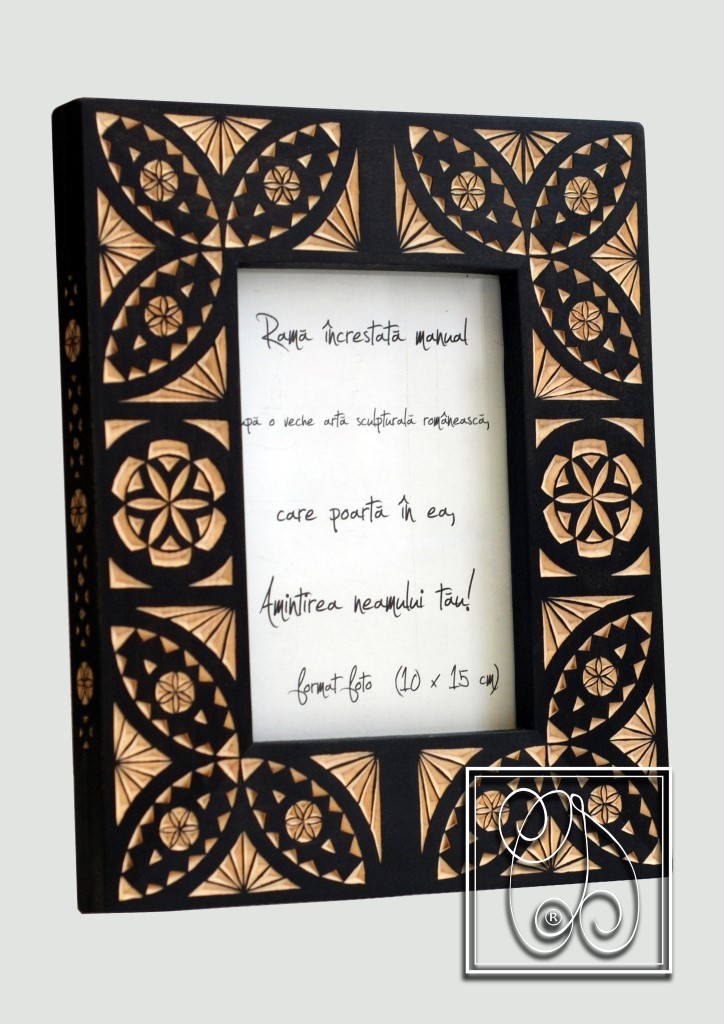 Ramă încrestată manual
upă o veche artă sculpturală românească,
care poartă în ea,
Amintirea neamului tău!
format foto (10 x 15 cm)
®